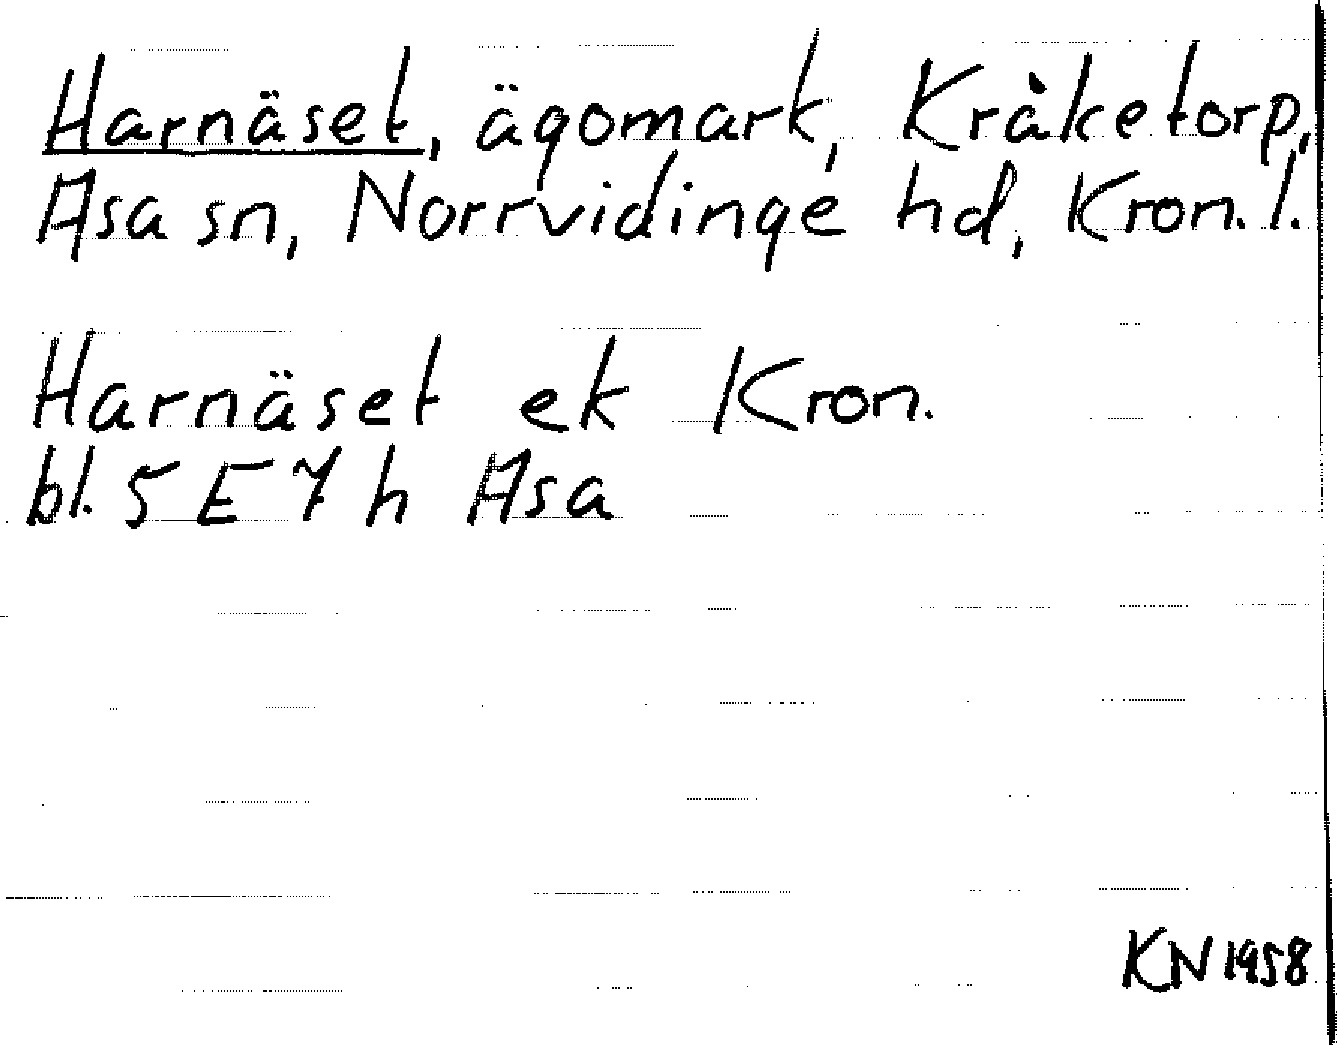 Harnäset, ägomark, Kråketorp,
Asa sn, Norrvidinge hd, Kron. l.
Harnäset ek Kron.
bl. 5 E 7 h Asa
KN 1958